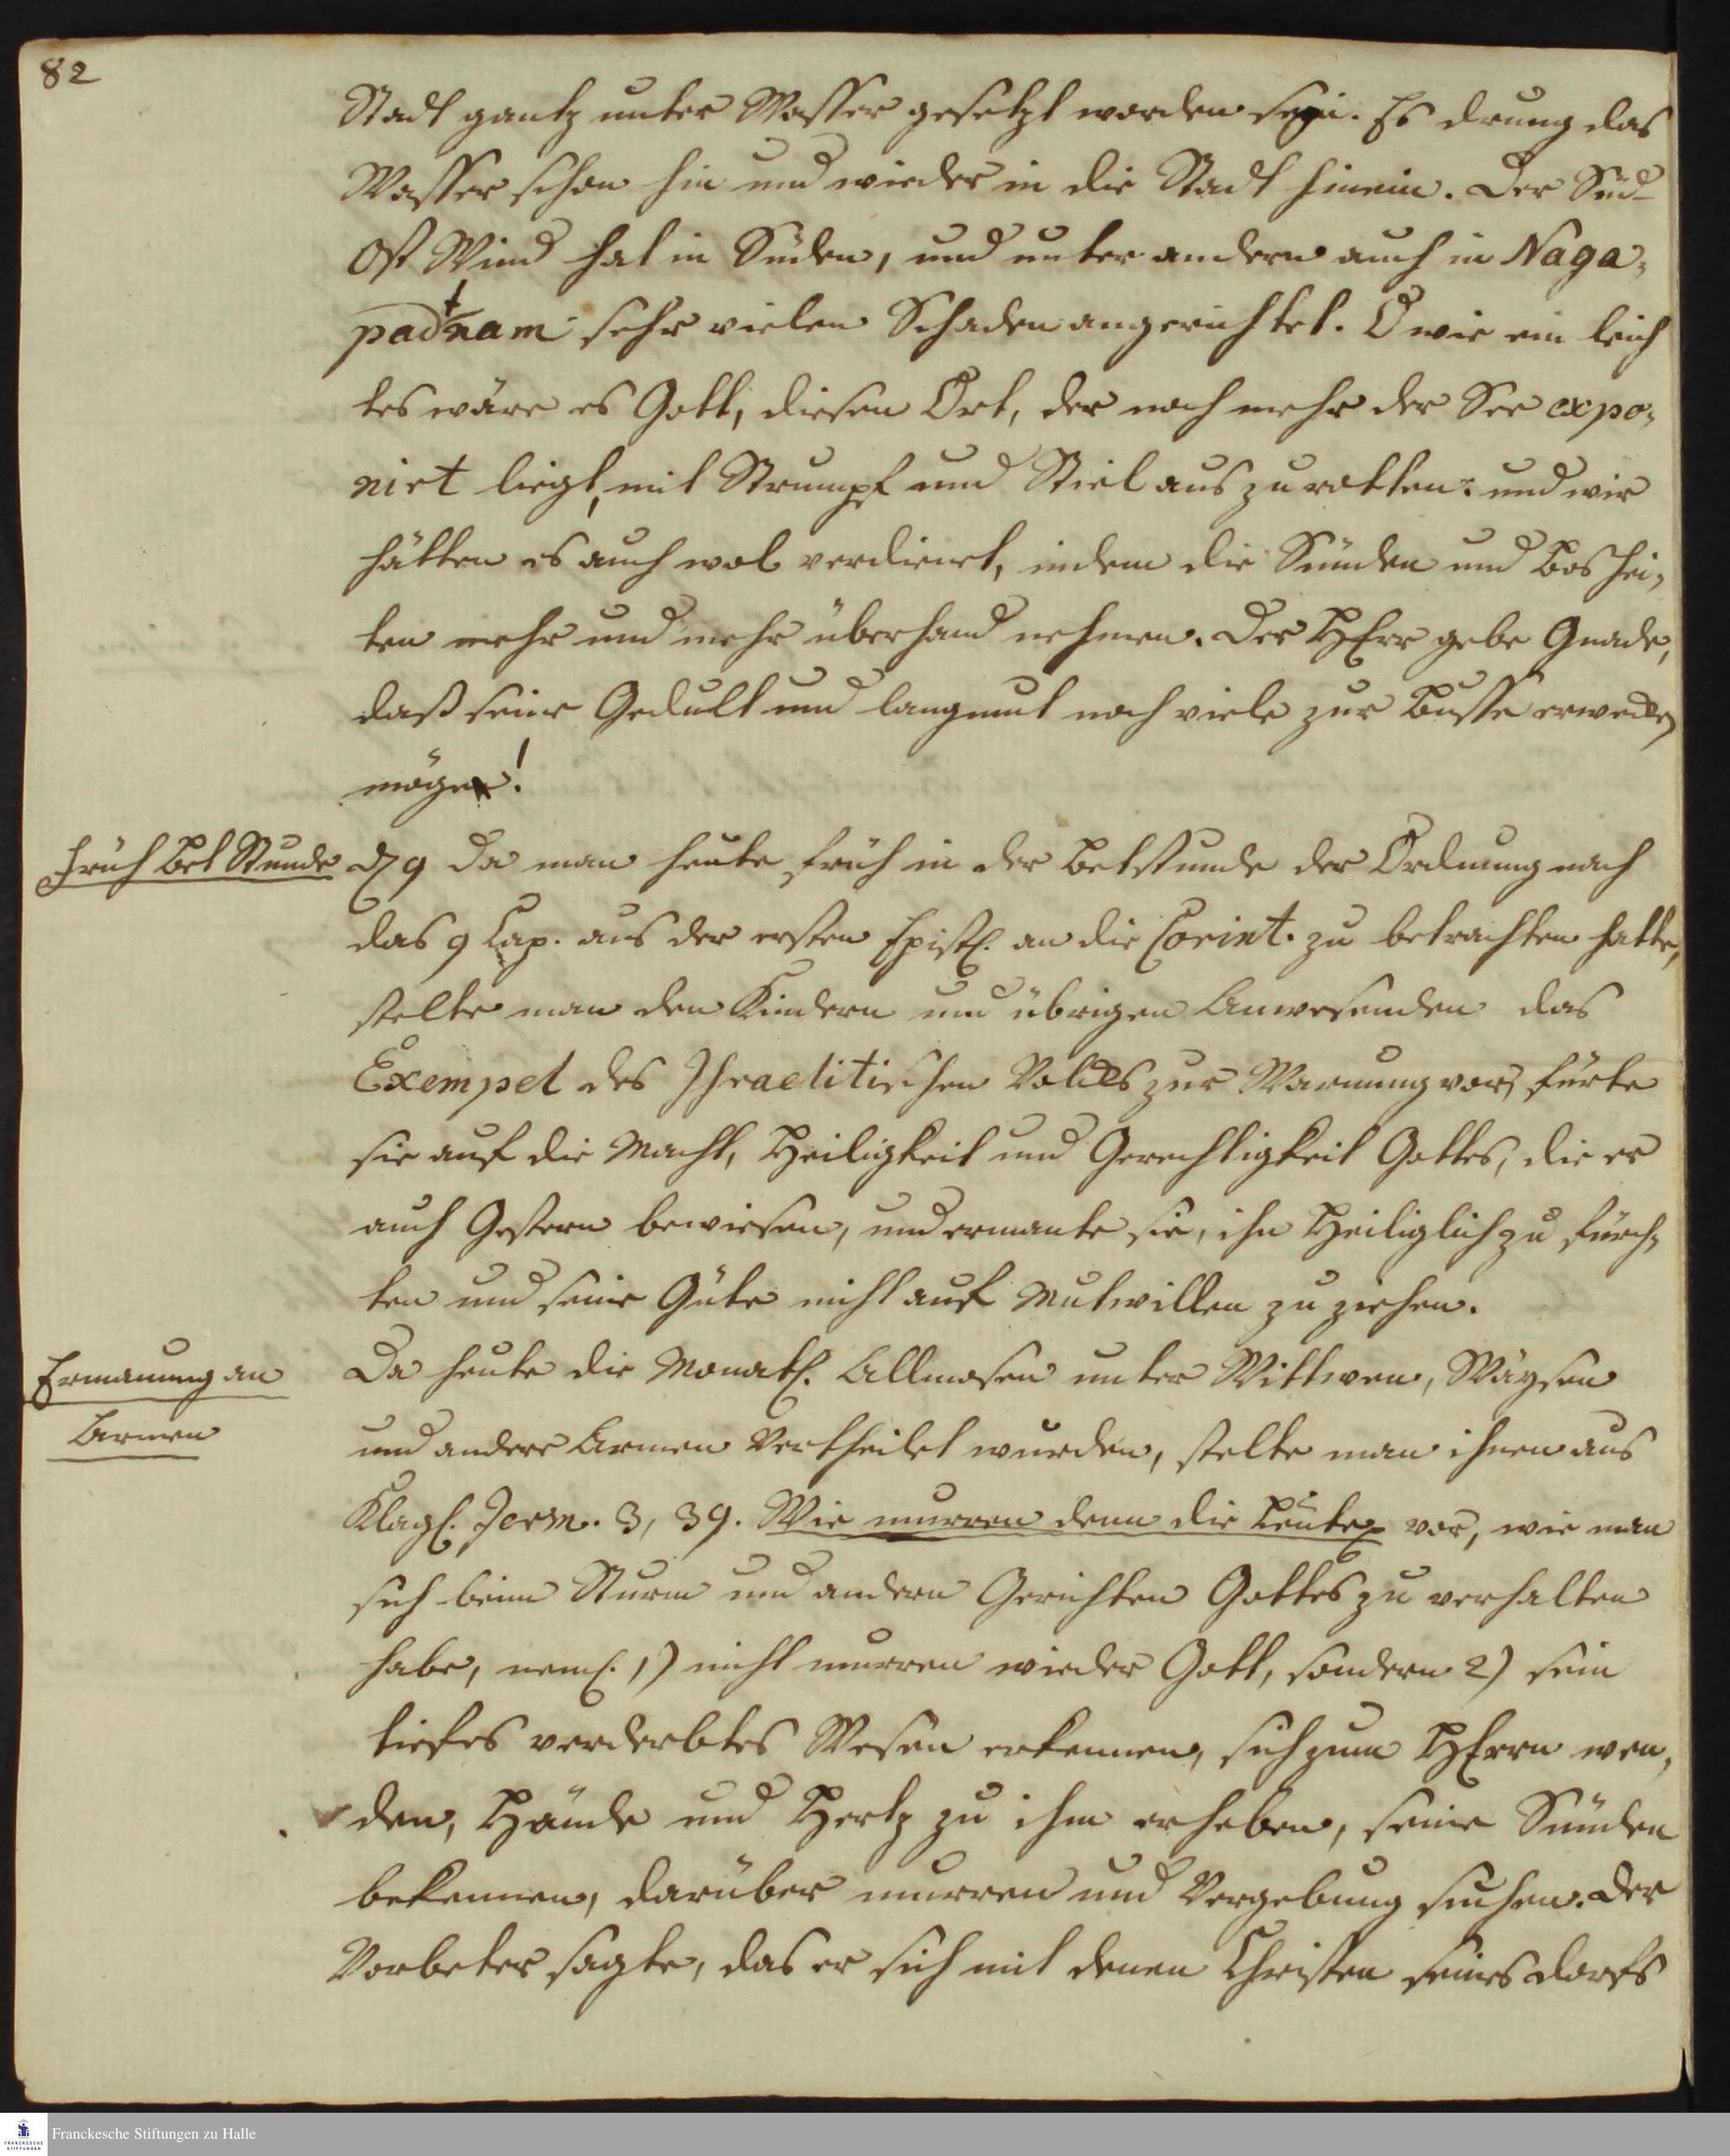 82
Stadt gantz unter Wasser gesetzt worden seyn. Es drung das
Wasser schon hin und wieder in die Stadt hinein. Der Süd-
Ost Wind hat in Süden, und unter andern auch in Naga-
patnam sehr vielen Schaden angerichtet. O wie ein leich
tes wäre es Gott, diesen Ort, der noch mehr der See expo-
nirt liegt, mit Strumpf und Stiel aus zu rotten: und wir
hätten es auch wol verdienet, indem die Sünden und Boshei-
ten mehr und mehr überhand nehmen. Der HErr gebe Gnade,
daß seine Gedult und langmut noch viele zur Busse erwecken
möge!
Früh Bet Stunde
d 9 Da man heute früh in der Betstunde der Ordnung nach
das 9 Cap. aus der ersten Epistl. an die Corint. zu betrachten hatte,
stelte man den Kindern und übrigen Anwesenden das
Exempel des Israelitischen Volcks zur Warnung vor, fürte
sie auf die Macht, Heiligkeit und Gerechtigkeit Gottes, die er
auch Gestern bewiesen, und ermante sie, ihn Heiliglich zu fürch-
ten und seine Güte nicht auf Mutwillen zu ziehen.
Ermanung an
Armen
Da heute die Monatl. Allmosen unter Wittwen, Wäysen
und andere Armen vertheilet wurden, stelte man ihnen aus
Klagl. Jerm. 3, 39. Wie murren denn die Leute vor, wie man
sich beim Sturm und andern Gerichten Gottes zu verhalten
habe, neml. 1) nicht murren wieder Gott, sondern 2) sein
tiefes verderbtes Wesen erkennen, sich zum HErrn wen-
den, Hände und Hertz zu ihm erheben, seine Sünden
bekennen, darüber murren und Vergebung suchen. Der
Vorbeter sagte, das er sich mit denen Christen seines dorfs
FRANCKESCHE STIFTUNGEN
Franckesche Stiftungen zu Halle